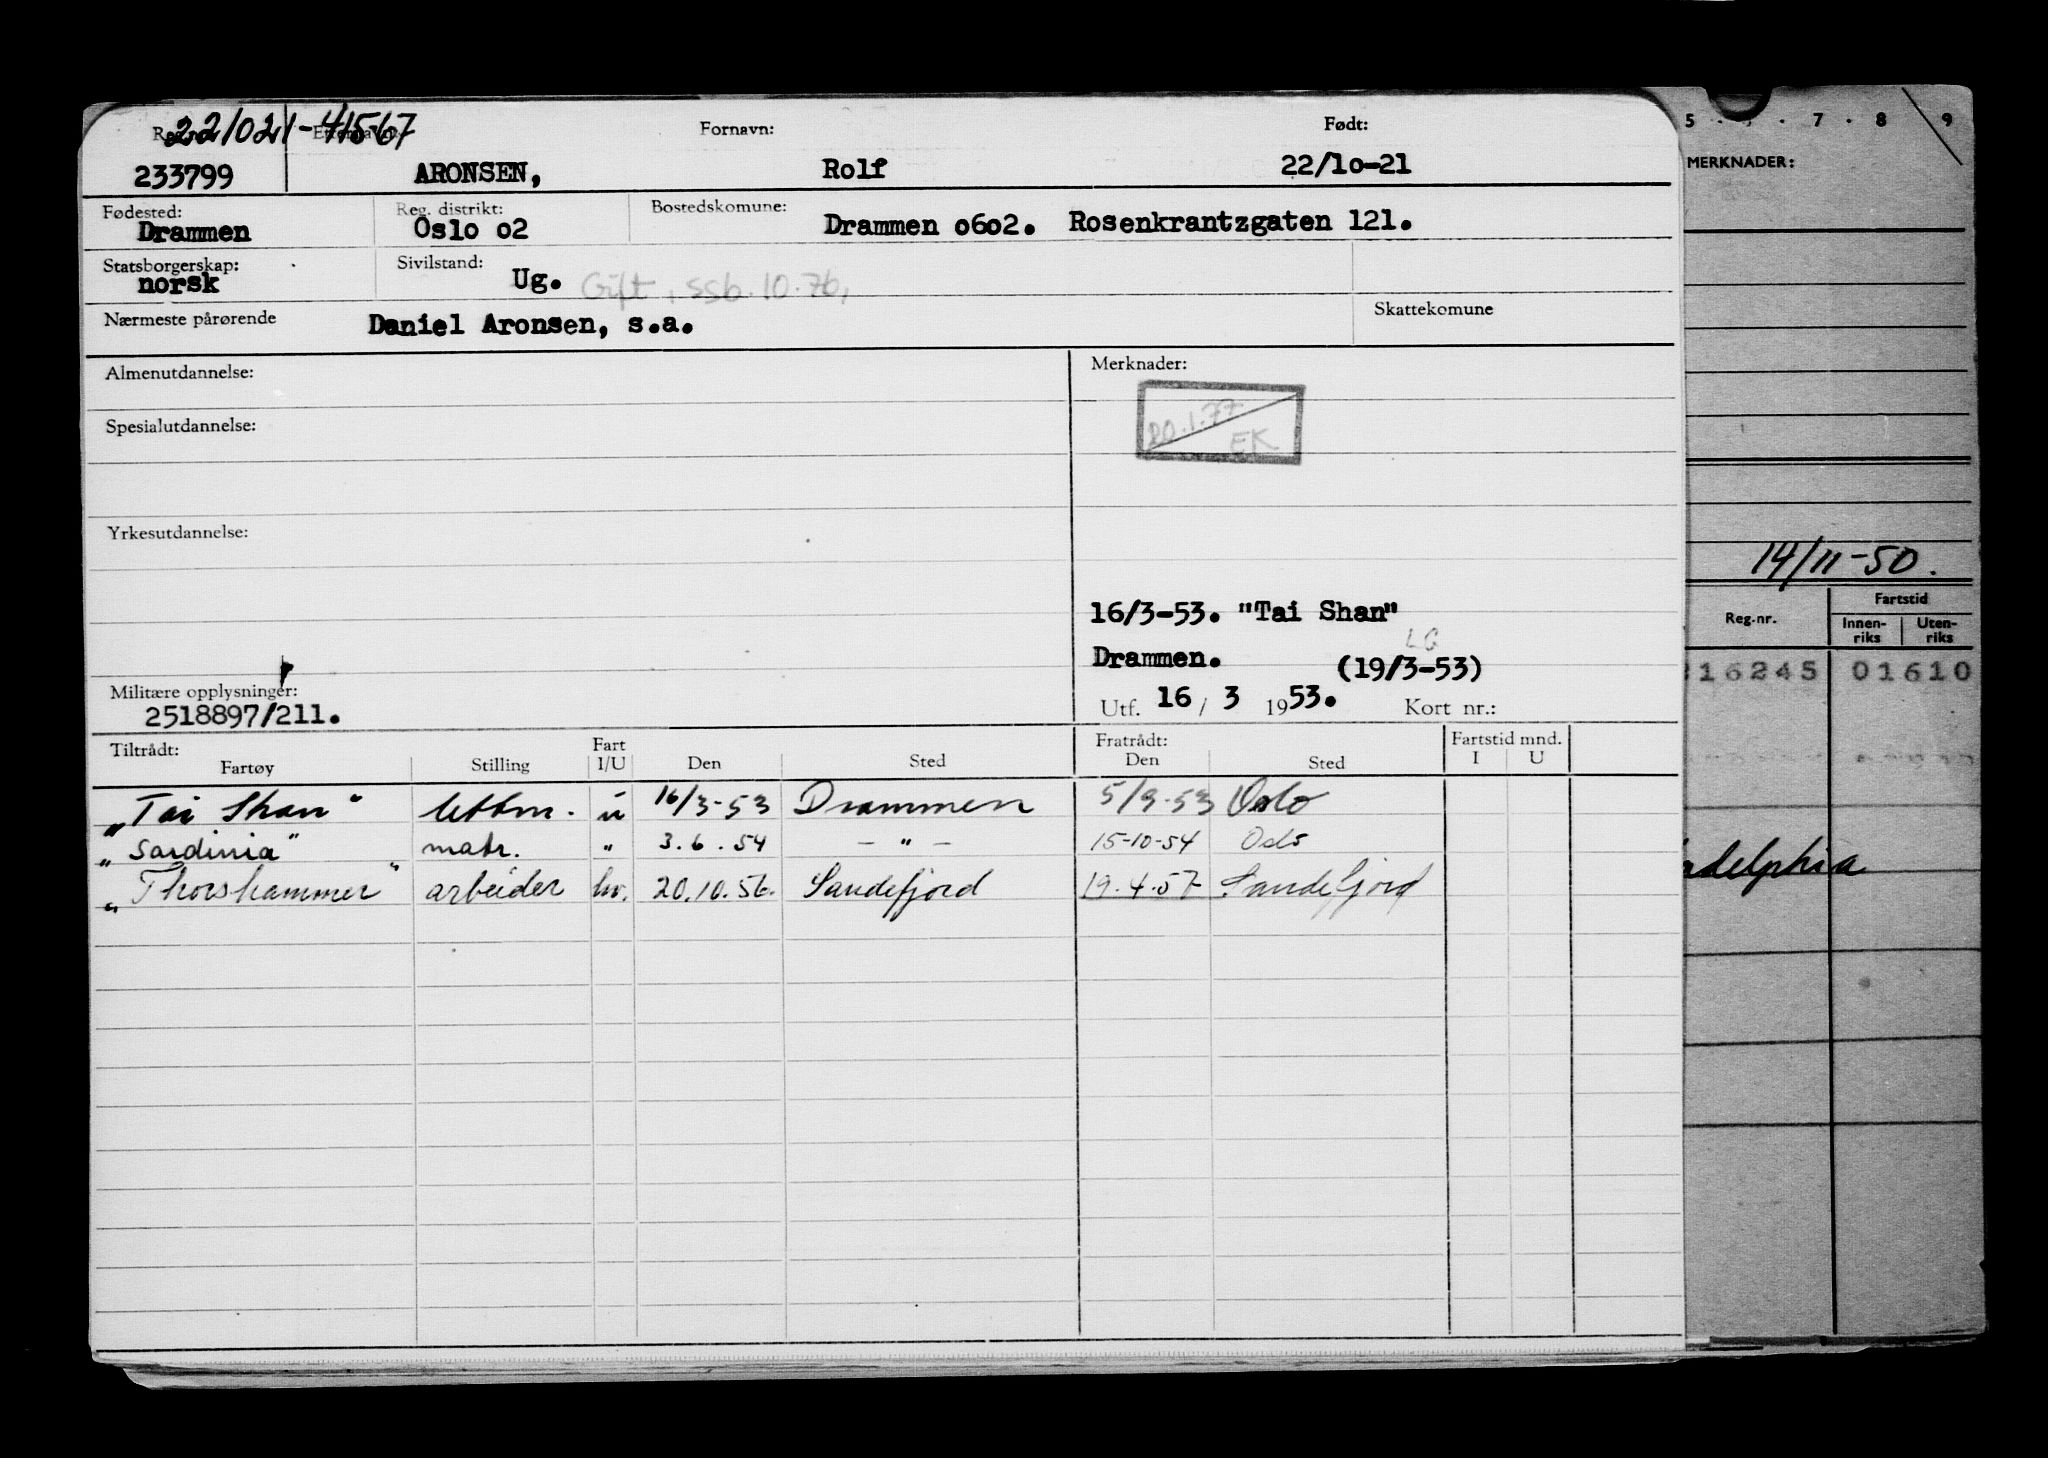 221021-41567
Reg.nr. Etternavn: Fornavn: Født:
233799 ARONSEN, Rolf 22/10-21
Fødested: Reg. distrikt: Bostedskomune:
Drammen Oslo o2 Drammen o6o2. Rosenkrantzgaten 121.
Statsborgerskap: Sivilstand:
norsk Ug. Gift, SSB. 10.76,
Nærmeste pårørende Daniel Aronsen, s.a. Skattekomune
Almenutdannelse: Merknader:
20.1.77
EK
Spesialutdannelse:
Yrkesutdannelse:
16/3-53. "Tai Shan"
LG
Drammen. (19/3-53)
Militære opplysninger:
2518897/211.
Utf. 16 / 3 1953. Kort nr.:
Tiltrådt: Fart Fratrådt: Fartstid mnd.
Fartøy Stilling I/U Den Sted Den Sted I U
„Tai Shan" lettm. u 16/3-53 Drammen 5/9-53 Oslo
„Sardinia" matr. " 3.6.54 - " - 15-10-54 Oslo
„Thorshammer" arbeider hv. 20.10.56. Sandefjord 19.4.57 Sandefjord
5 . . 7 . 8 9
MERKNADER:
14/11-50.
Reg.nr. Fartstid
Innen-riks Uten-riks
16245 01610
adelphia